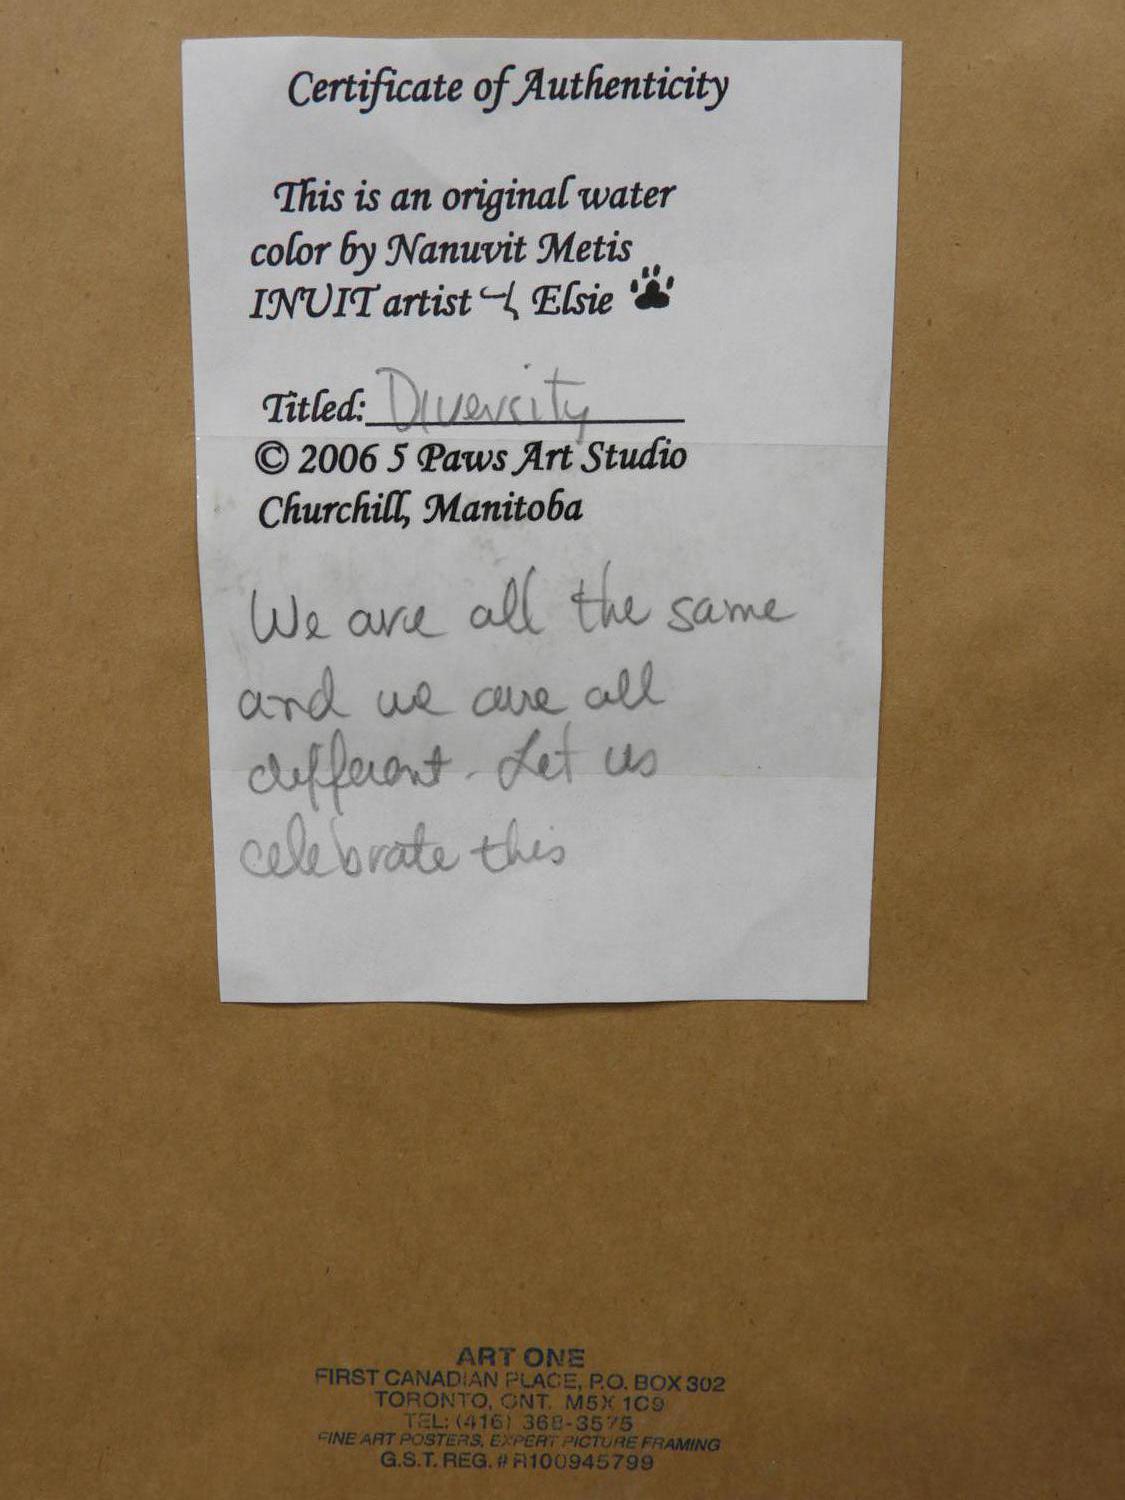 Certificate of Authenticity
This is an original water
color by Nanuvit Metis
INUIT artist Elsie
Titled: Diversity
© 2006 5 Paws Art Studio
Churchill, Manitoba
We are all the same
and we are all
different. Let us
celebrate this
ART ONE
FIRST CANADIAN PLACE, P.O. BOX 302
TORONTO, ONT. M5X 1C9
TEL: (416) 368-3575
FINE ART POSTERS, EXPERT PICTURE FRAMING
G.S.T. REG. # R100945799